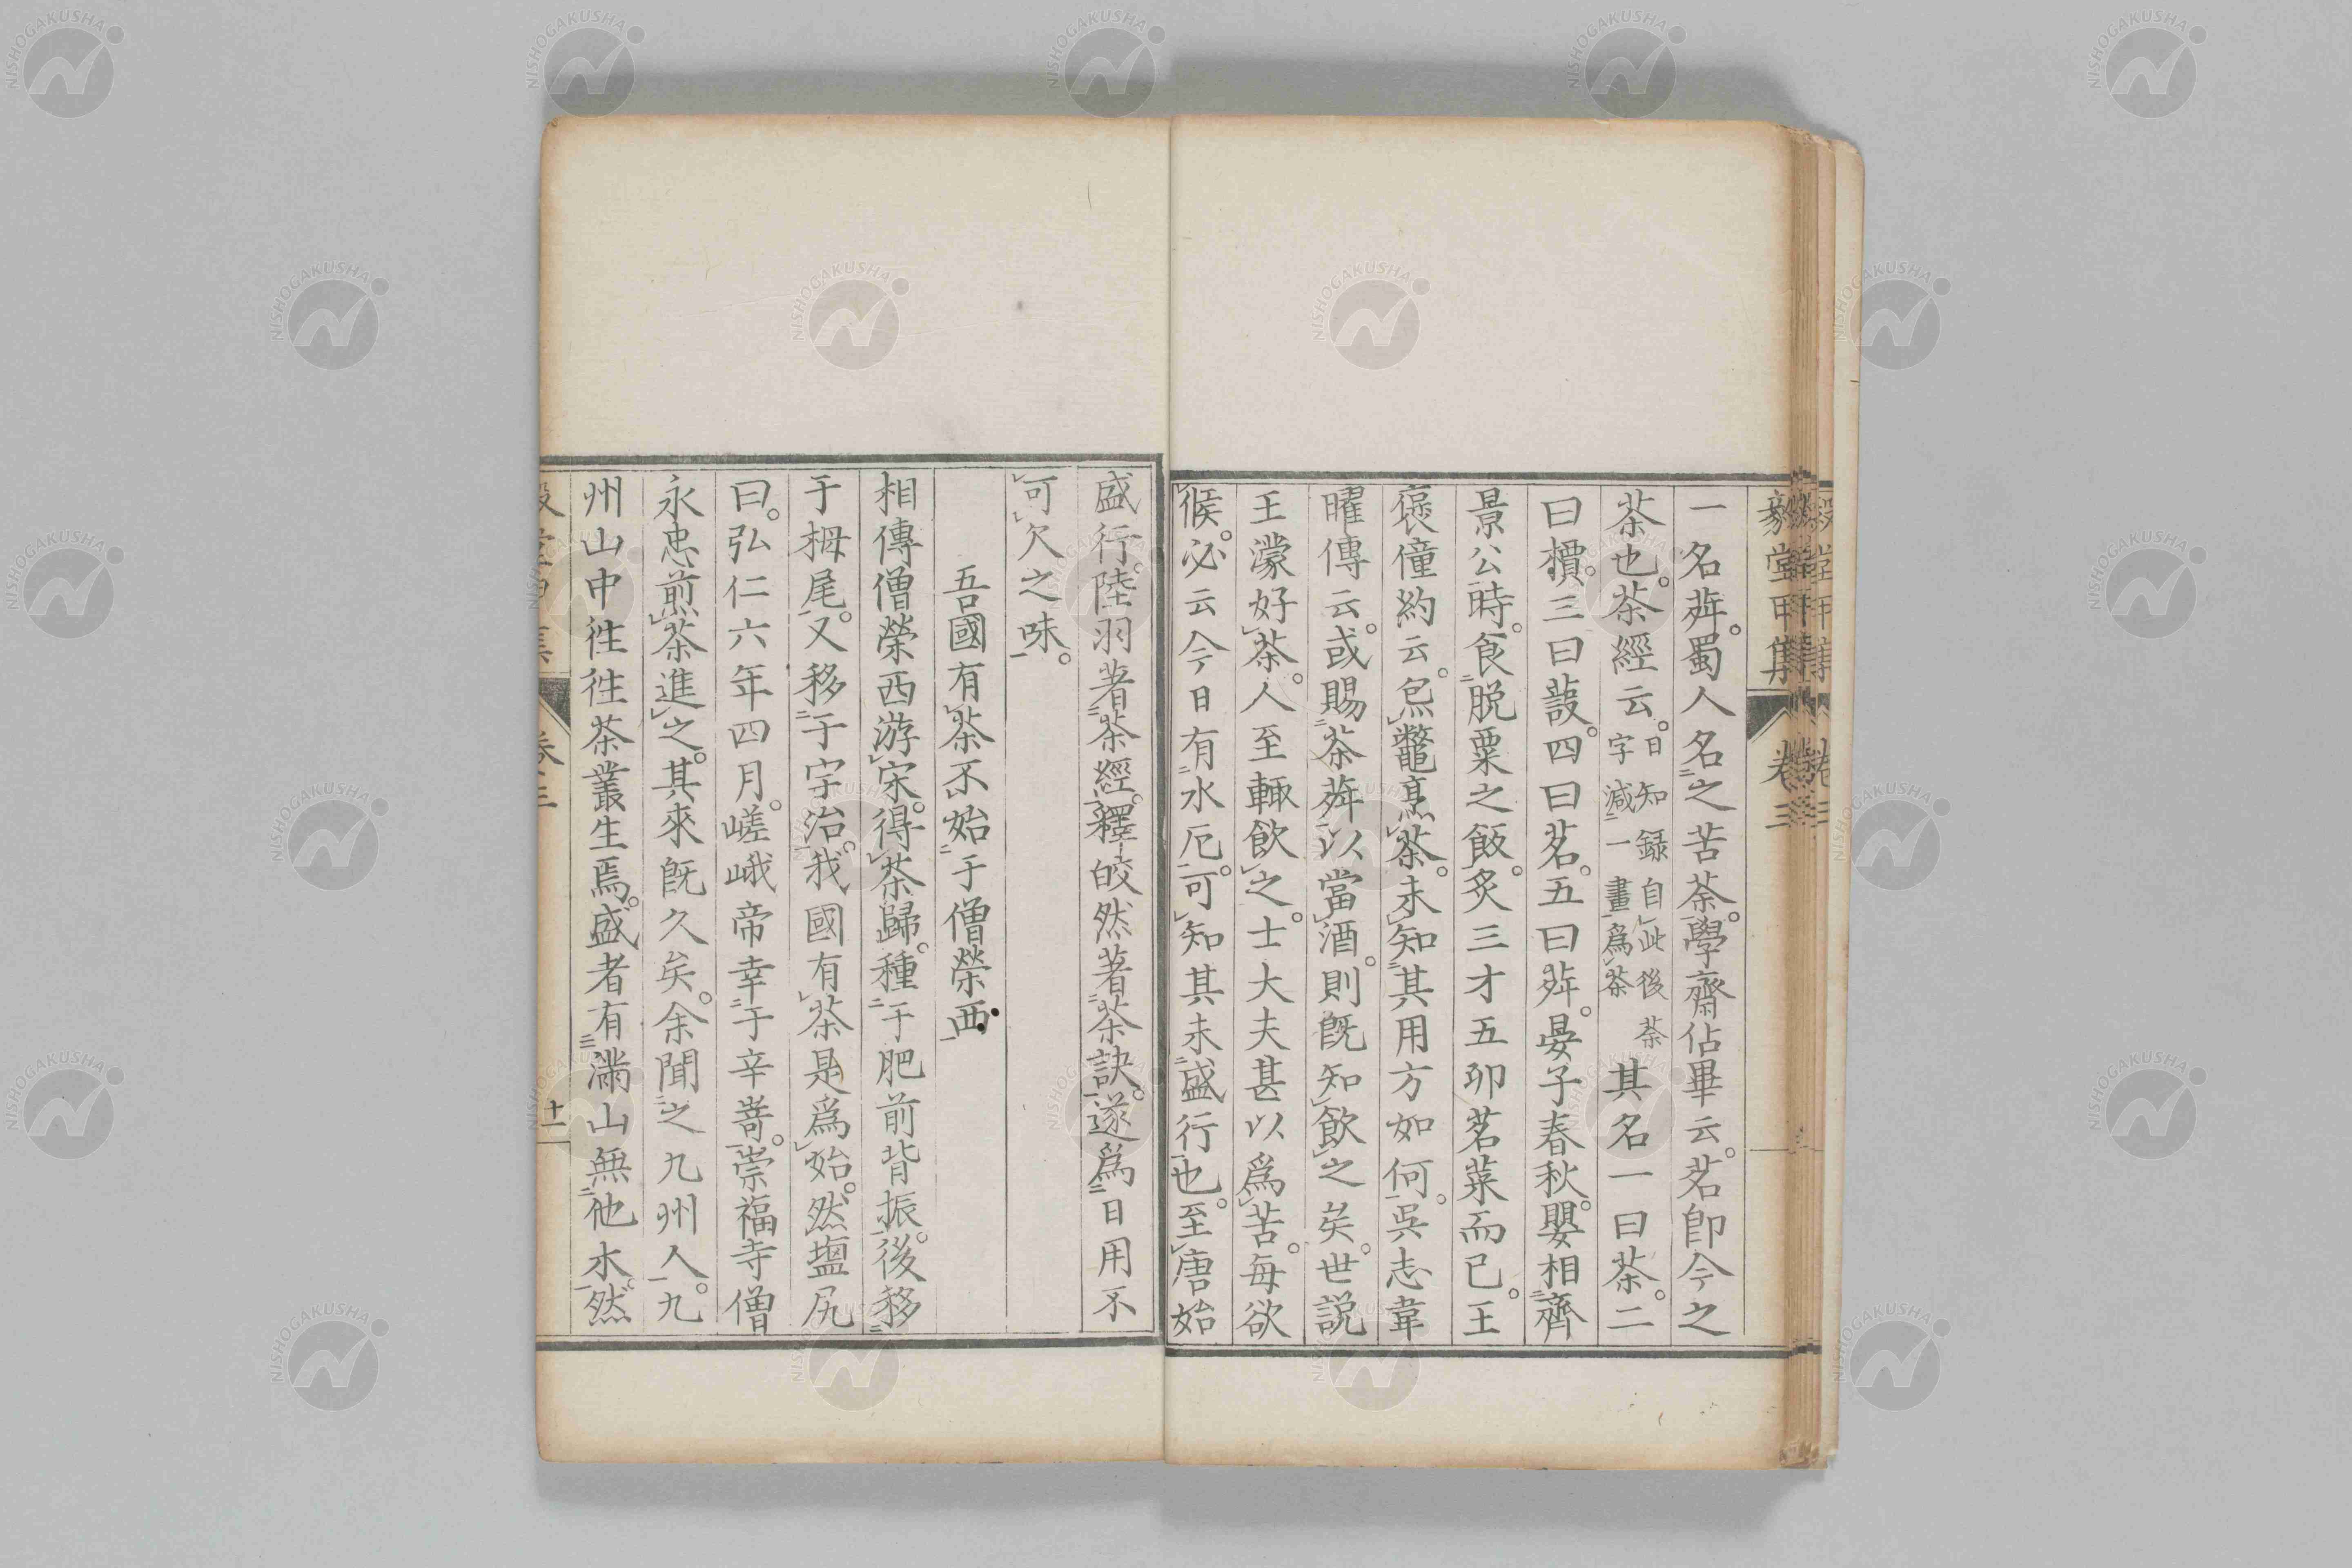 一名荈。蜀人名之苦荼。學齋佔畢云。茗卽今之
茶也。茶經云。日知錄自此後荼字減一畫爲茶其名一曰茶。二
曰檟。三曰蔎。四曰茗。五曰荈。晏子春秋。嬰相齊
景公時。食脫粟之飯。炙三才五卯茗菜而已。王
褒僮約云。炰鼈烹茶。未知其用方如何。吳志韋
曜傳云。或賜茶荈以當酒。則旣知飲之矣。世說
王濛好茶。人至輒飲之。士大夫甚以爲苦。每欲
候。必云今日有水厄。可知其未盛行也。至唐始
毅堂丙集 卷三
盛行。陸羽著茶經。釋皎然著茶訣。遂爲日用不
可欠之味。
吾國有茶不始于僧榮西
相傳僧榮西游宋。得茶歸。種于肥前背振。後移
于栂尾。又移于宇治。我國有茶是爲始。然鹽尻
曰。弘仁六年四月。嵯峨帝幸于辛嵜。崇福寺僧
永忠煎茶進之。其來旣久矣。余聞之九州人。九
州山中徃徃茶叢生焉。盛者有滿山無他木。然
卷三
十一
NISHOGAKUSHA